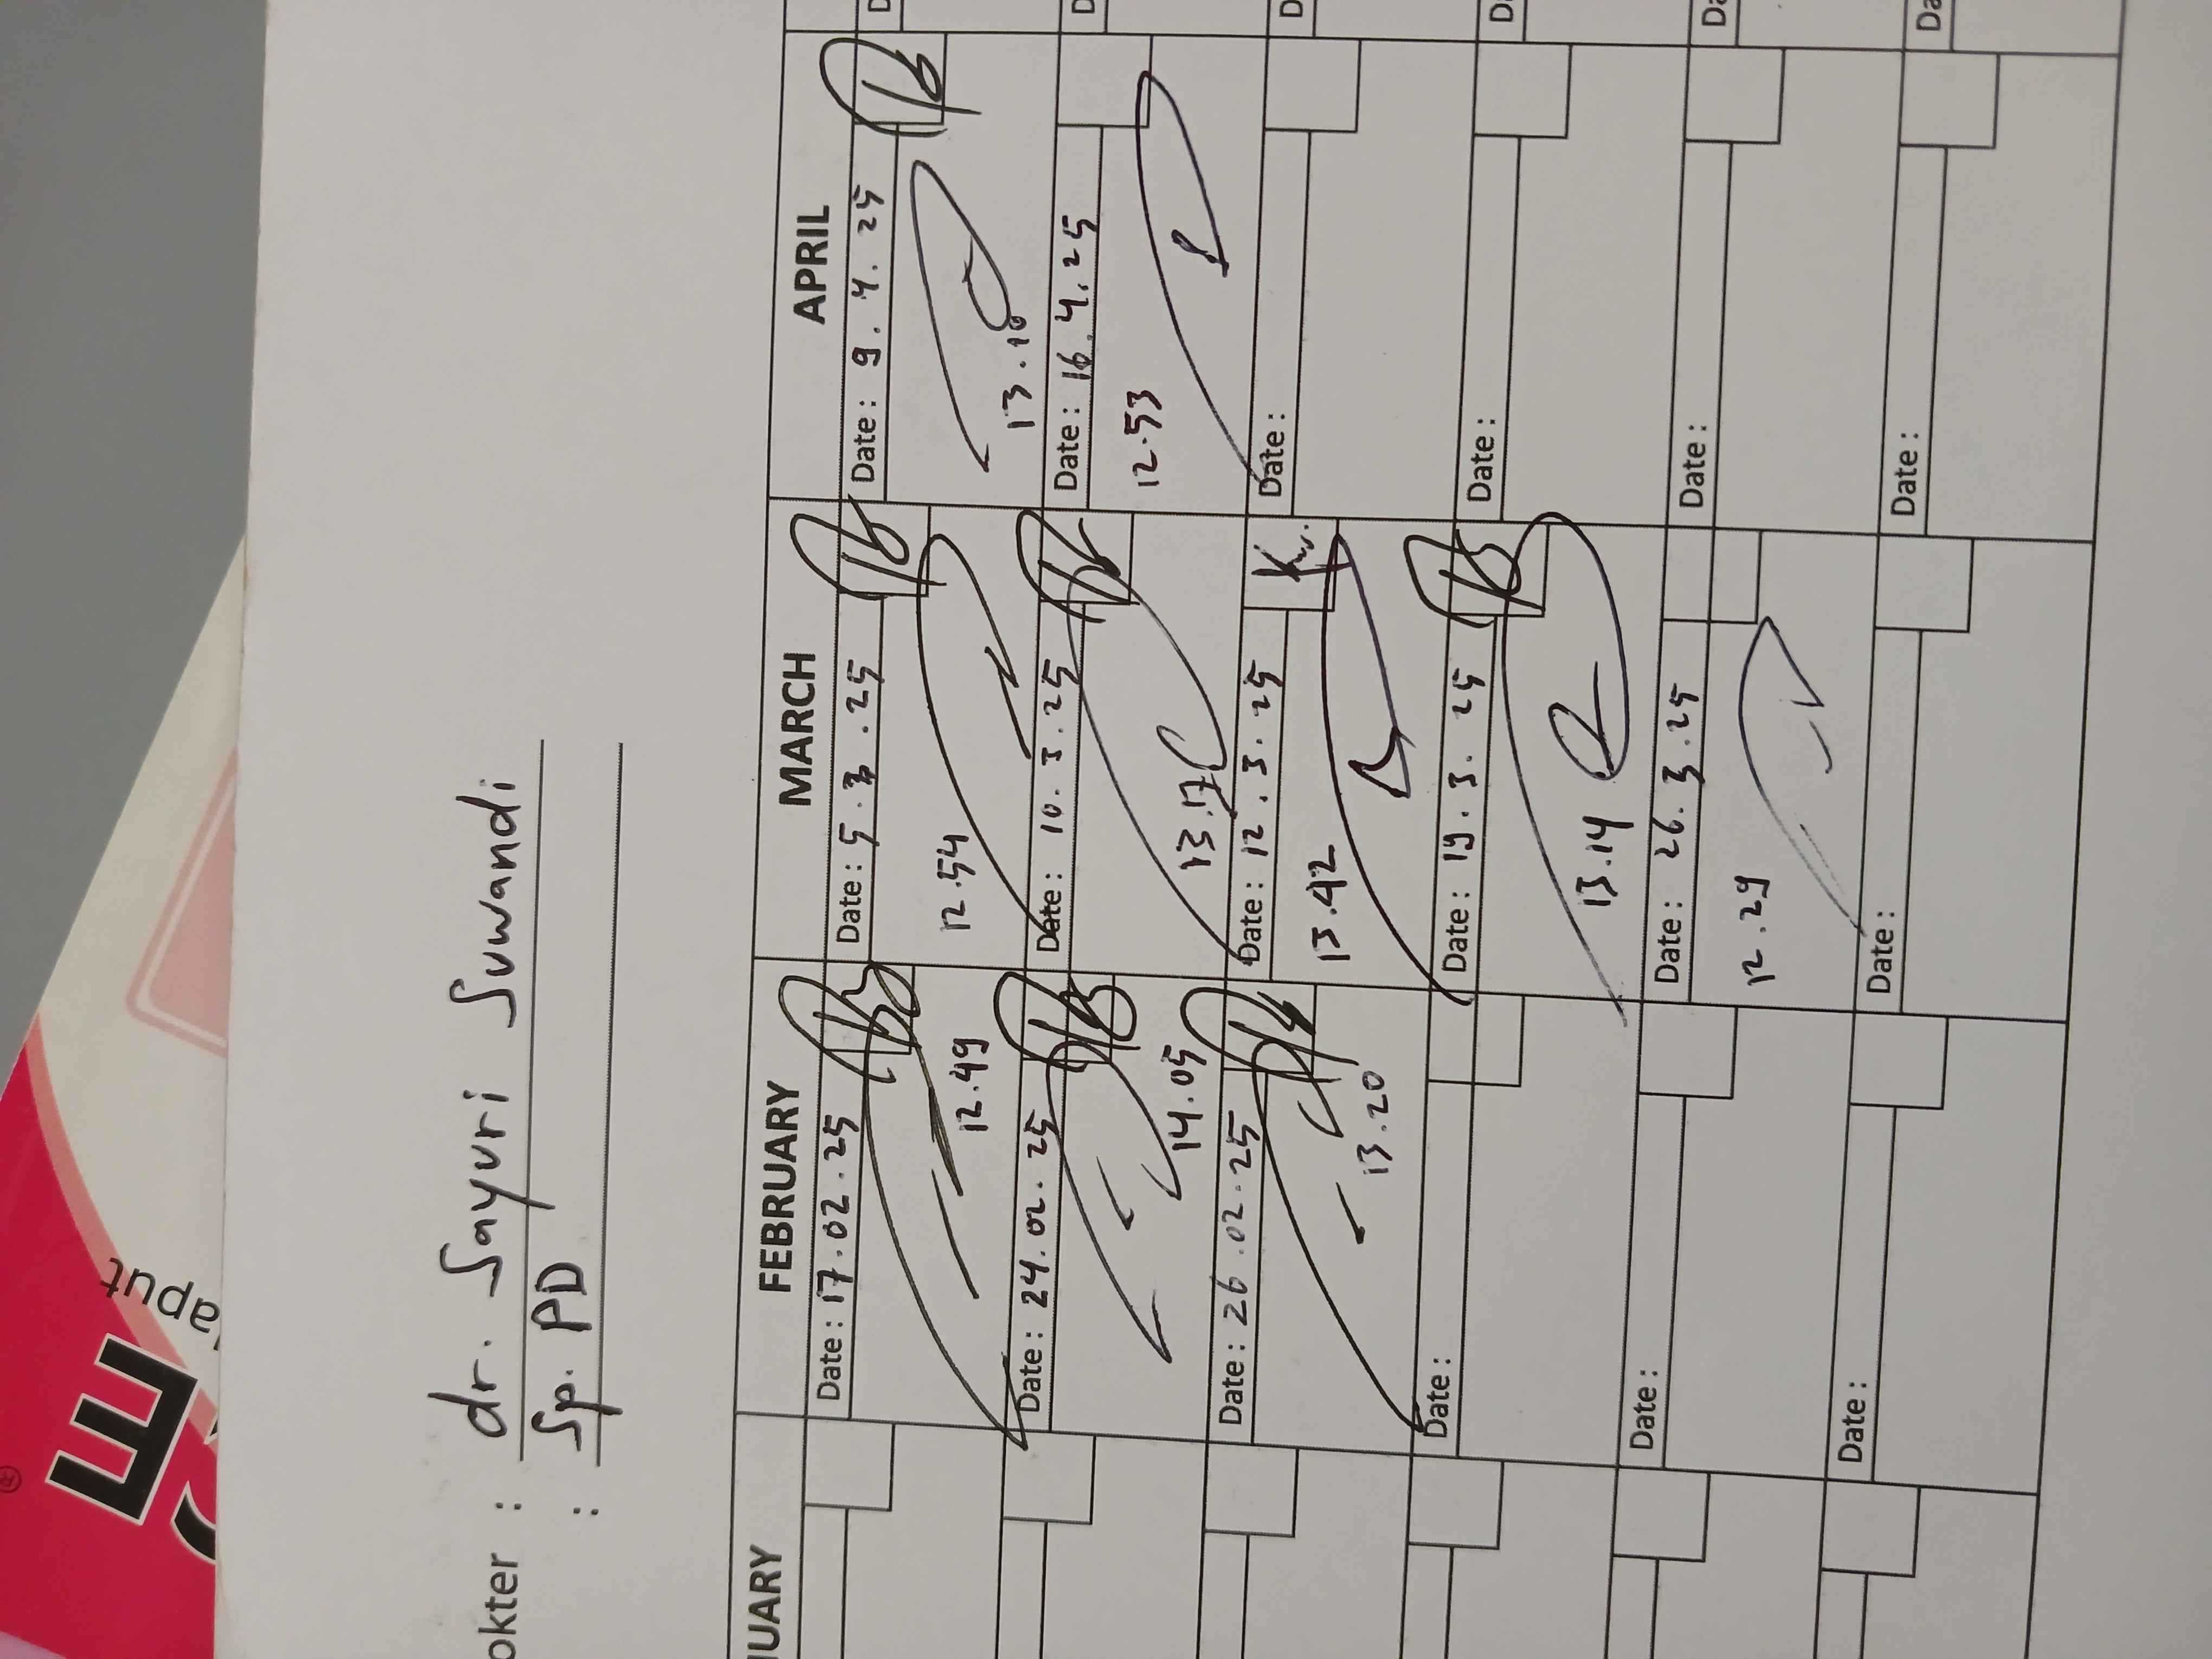 okter : dr. Sayuri Suwandi
: Sp. PD
UARY
FEBRUARY
MARCH
APRIL
Date : 17.02.25
12.49
Date : 24.02.25
14.05
Date : 26.02.25
13.20
Date :
Date :
Date :
Date : 5.3.25
12.54
Date : 10.3.25
13.17
Date : 12.3.25
13.42
Date : 19.3.25
13.14
Date : 26.3.25
12.29
Date :
Date : 9.4.25
Date : 16.4.25
12.53
Date :
Date :
Date :
Date :
aput